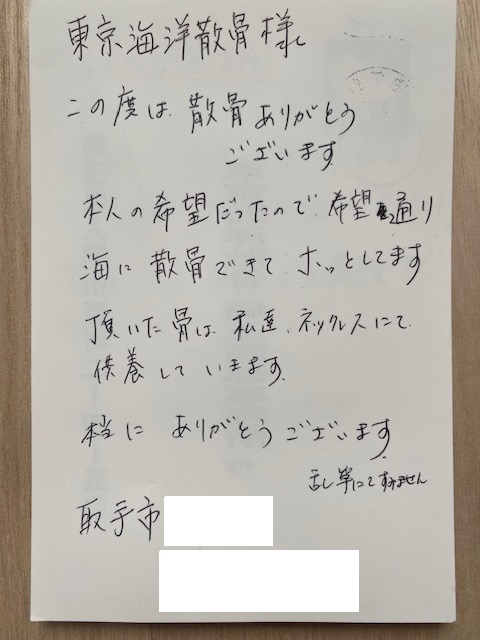 東京海洋散骨様
この度は 散骨ありがとう
ございます
本人の希望だったので 希望通り
海に散骨できて ホッとしてます
頂いた骨は 私達、ネックレスにて
供養していきます。
本当に ありがとうございます
乱筆にてすみません
取手市